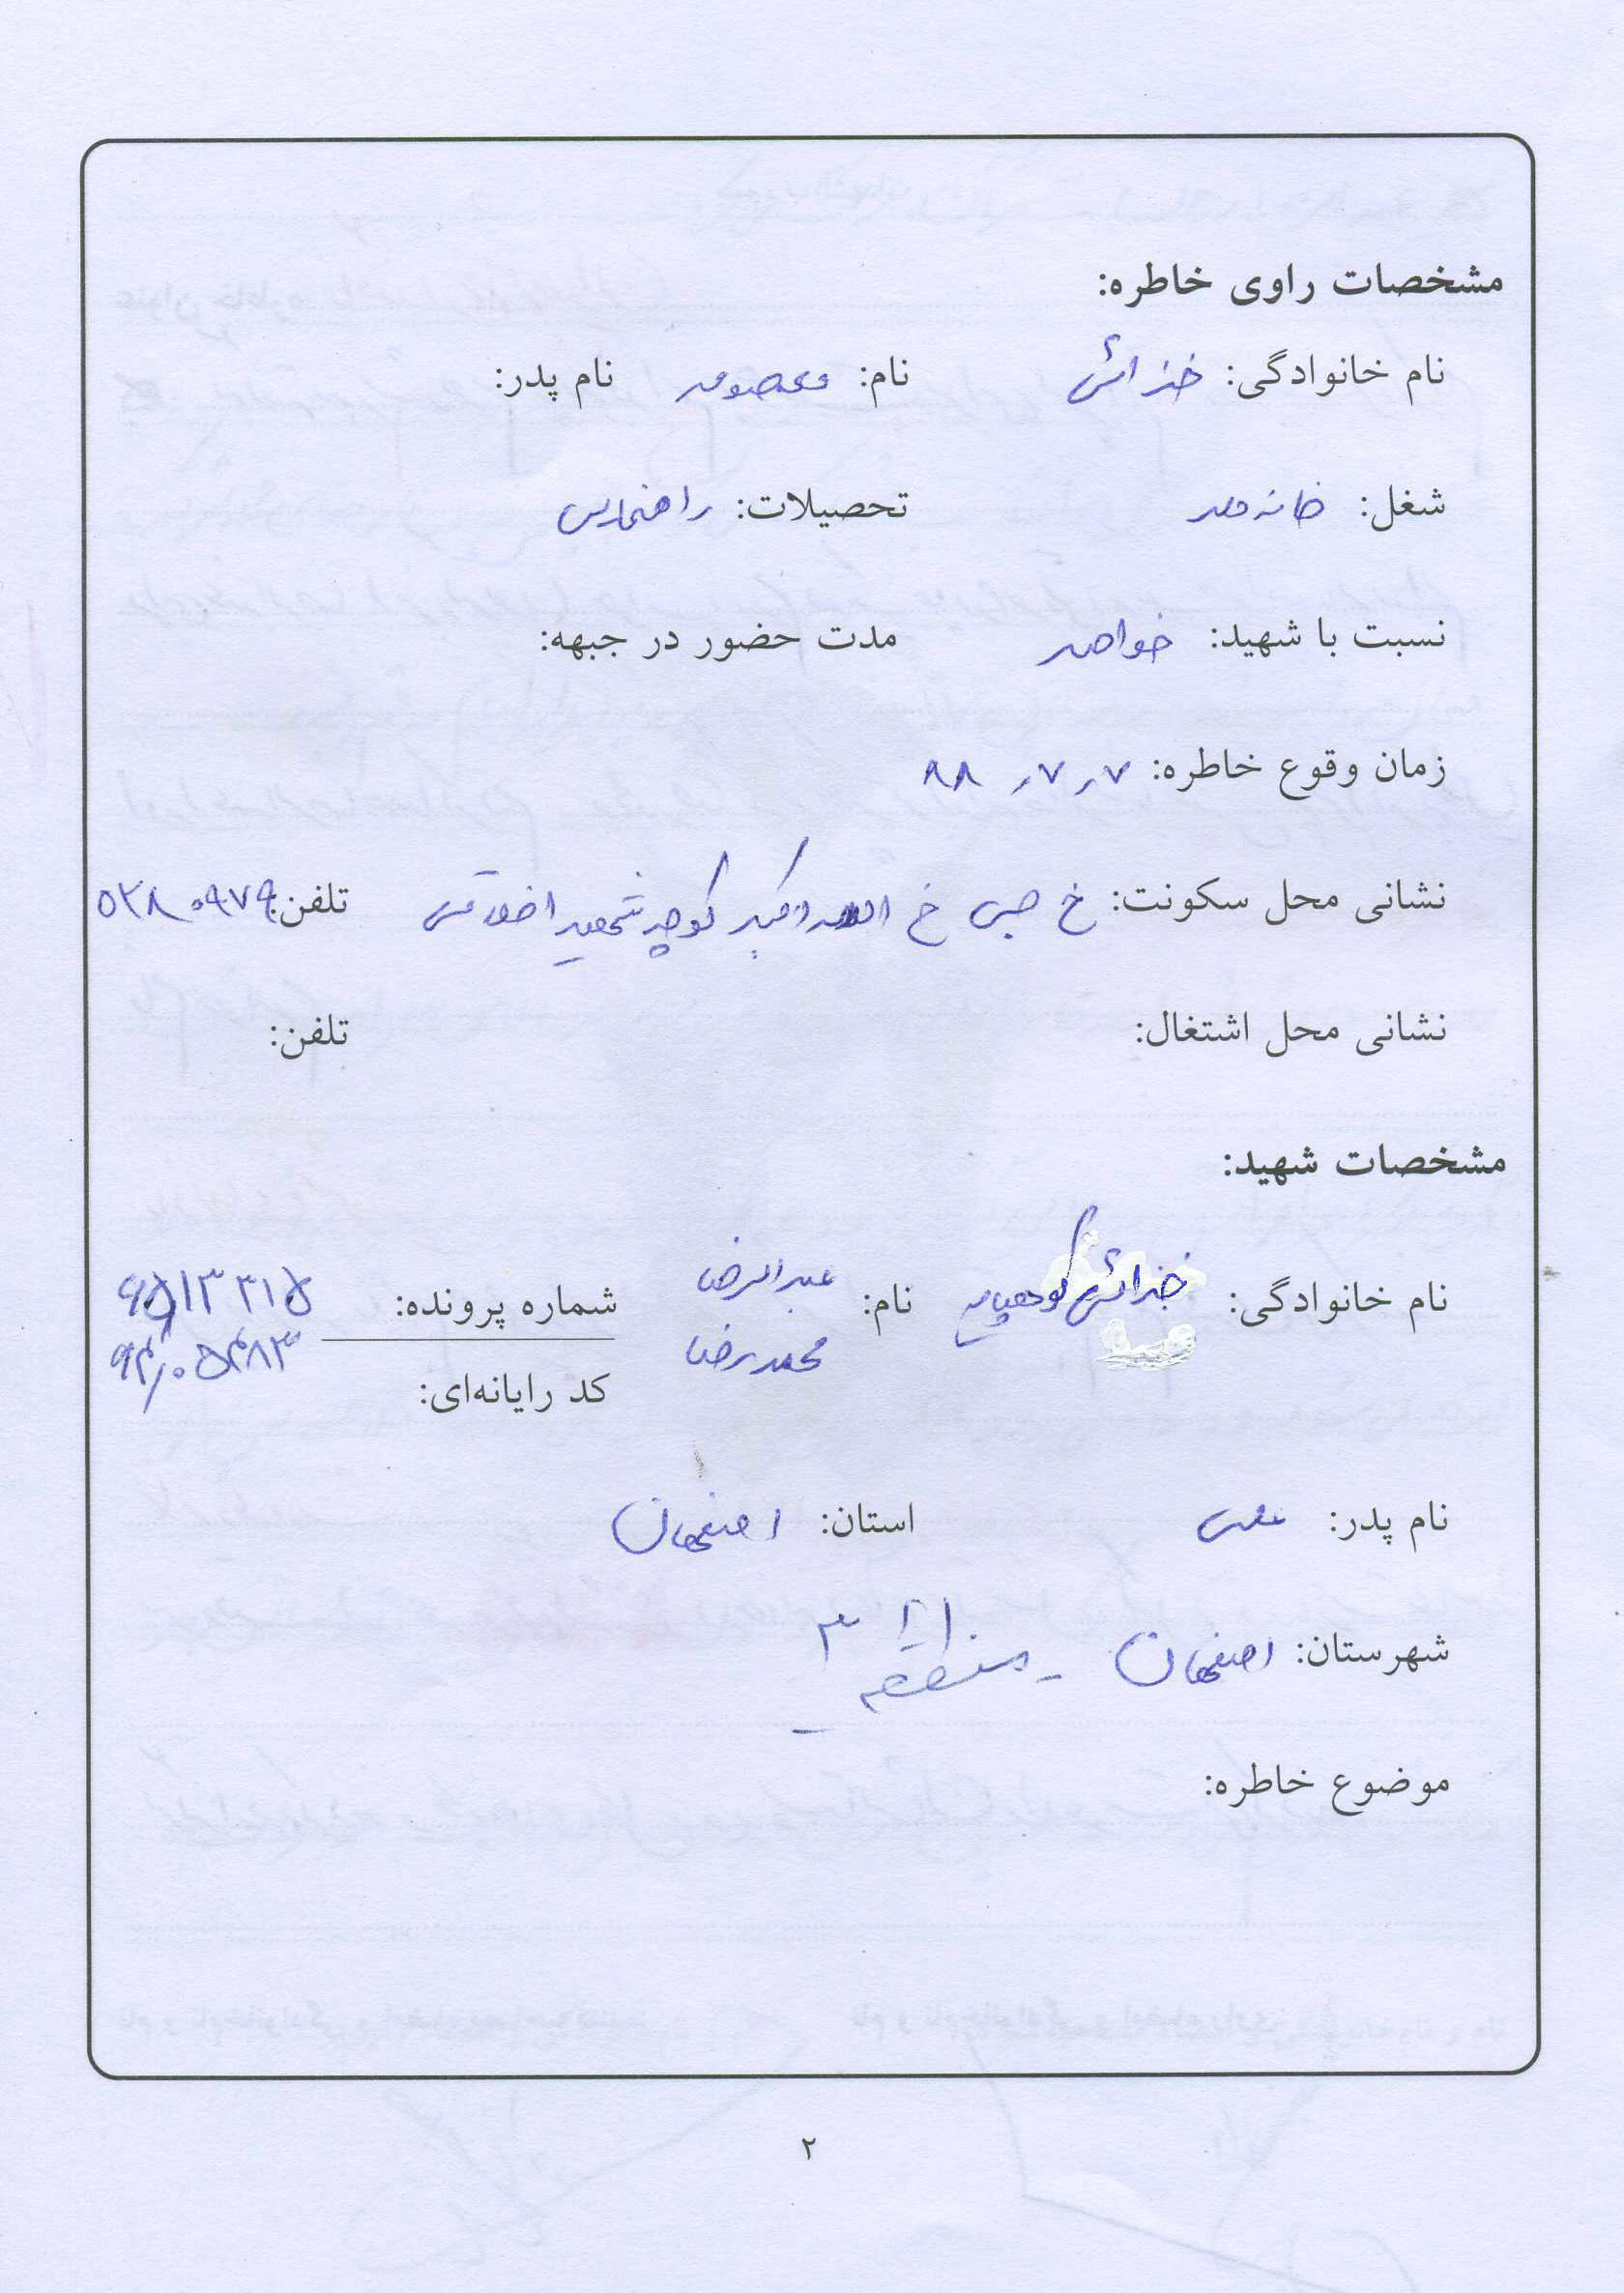 مشخصات راوی خاطره:
نام خانوادگی: خزائی نام: معصومه نام پدر:
شغل: خانه دار تحصیلات: راهنمایی
نسبت با شهید: خواهر مدت حضور در جبهه:
زمان وقوع خاطره: ۷ر۷ر۸۸
نشانی محل سکونت: خ خ الله اکبر کوچه شهید اخلاقی تلفن: ۵۲۸۰۹۷۹
نشانی محل اشتغال: تلفن:
مشخصات شهید:
نام خانوادگی: خزائی کوهپایه نام: عبدالرضا شماره پرونده: ۹۵۱۳۳۱۵
محمدرضا ۹۴۰۵۴۸۳
کد رایانه‌ای:
نام پدر: استان: اصفهان
شهرستان: اصفهان - منطقه ۳
موضوع خاطره:
۲